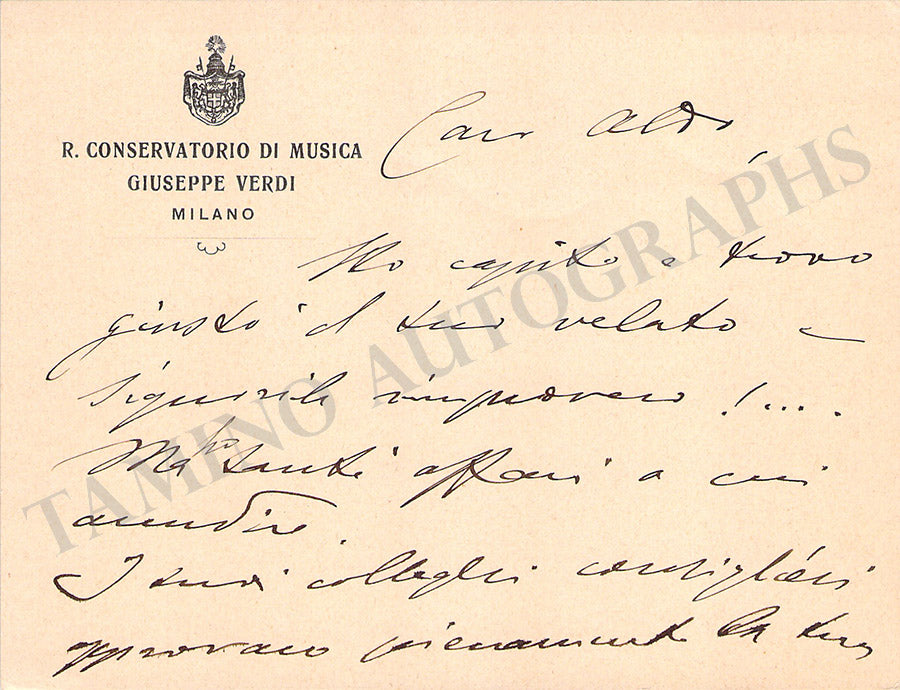 R. CONSERVATORIO DI MUSICA
GIUSEPPE VERDI
MILANO
Caro Aldo
Ho capito e trovo
giusto il tuo velato e
signorile rimprovero !....
Ma ho tanti affari a cui
accudire.
I tuoi colleghi consiglieri
approvano pienamente la tua
TAMINO AUTOGRAPHS